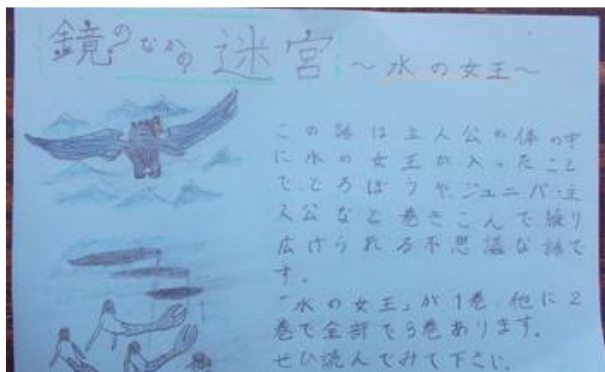 鏡のなかの迷宮 ～水の女王～
この話は主人公の体の中
に水の女王が入ったこと
で、どろぼうや、ジュニパ・主
人公などと巻きこんで繰り
広げられる不思議な話で
す。
「水の女王」が1巻、他に2
巻で全部で3巻あります。
ぜひ読んでみて下さい。